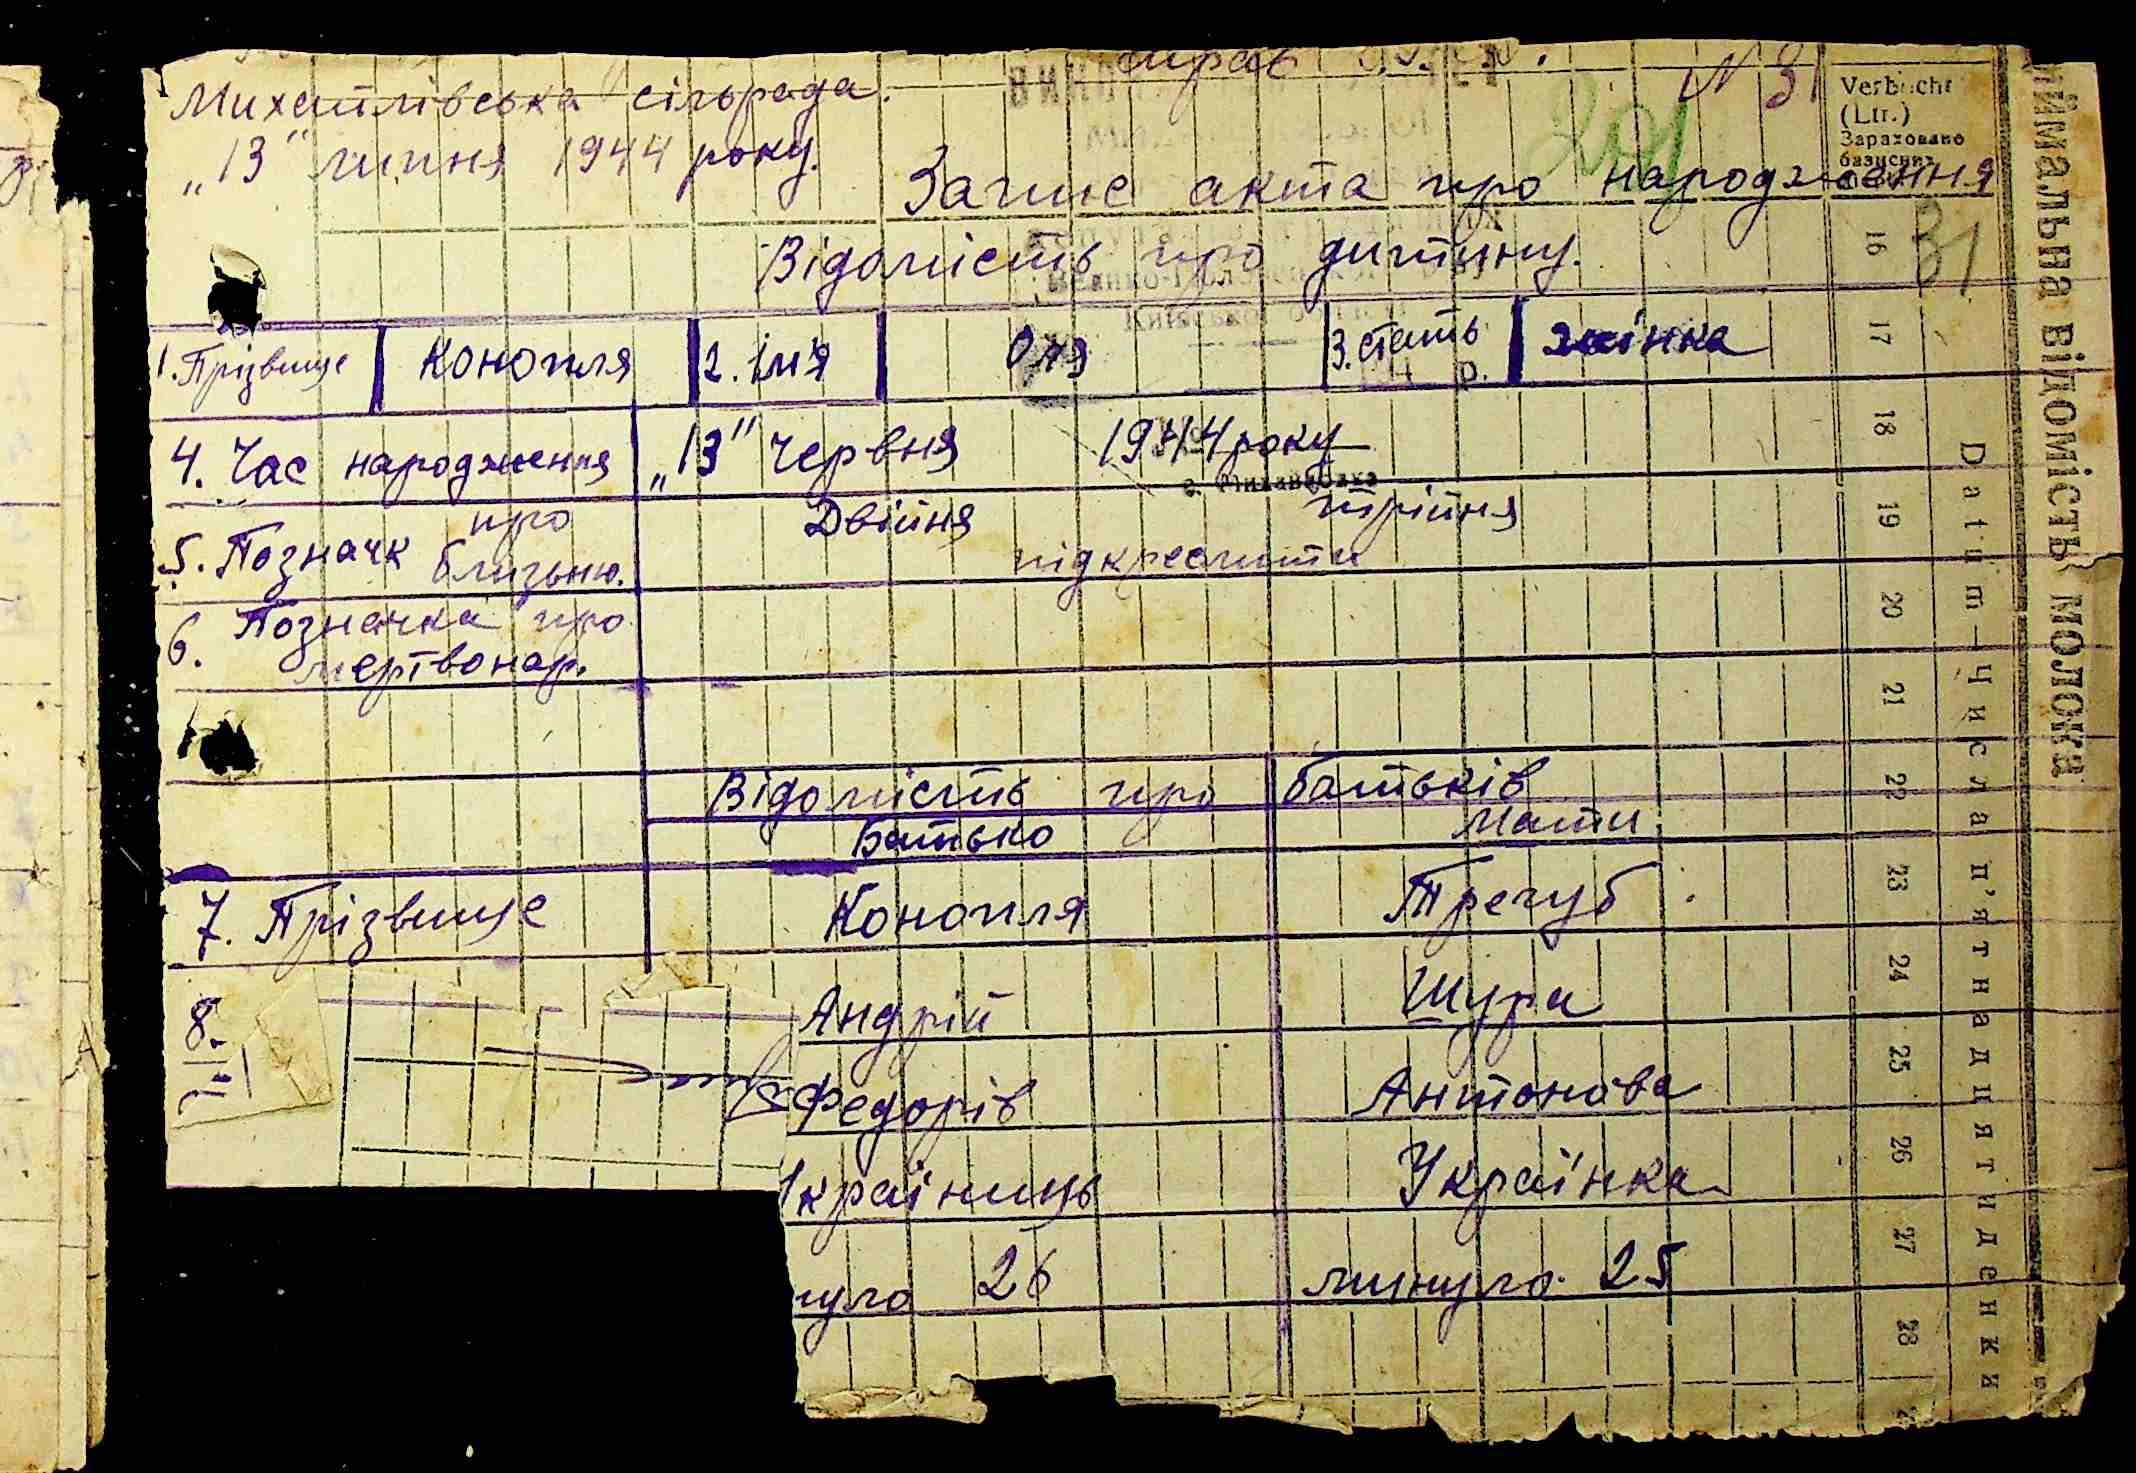 N 31
Михайлівська сільрада.
201
„13" липня 1944 року.
Запис акта про народження
31
Відомість про дитину.
1. Прізвище Конопля 2. імя Оля 3. стать жінка
4. Час народження „13" Червня 1944 року
с. Михайлівка
5. Позначк про близьню. Двійня трійня
підкреслити
6. Позначка про
мертвонар.
Відомість про батьків
Батько Мати
7. Прізвище Конопля Трегуб
8. Андрій Шура
Федорів Антонова
країнець Українка
нуло 26 минуло 25
Verbucht
(Ltr.)
Зараховано
базисних
16
17
18
19
20
21
22
23
24
25
26
27
28
Datum — Числа п'ятнадцятиденки
ймальна відомість молока